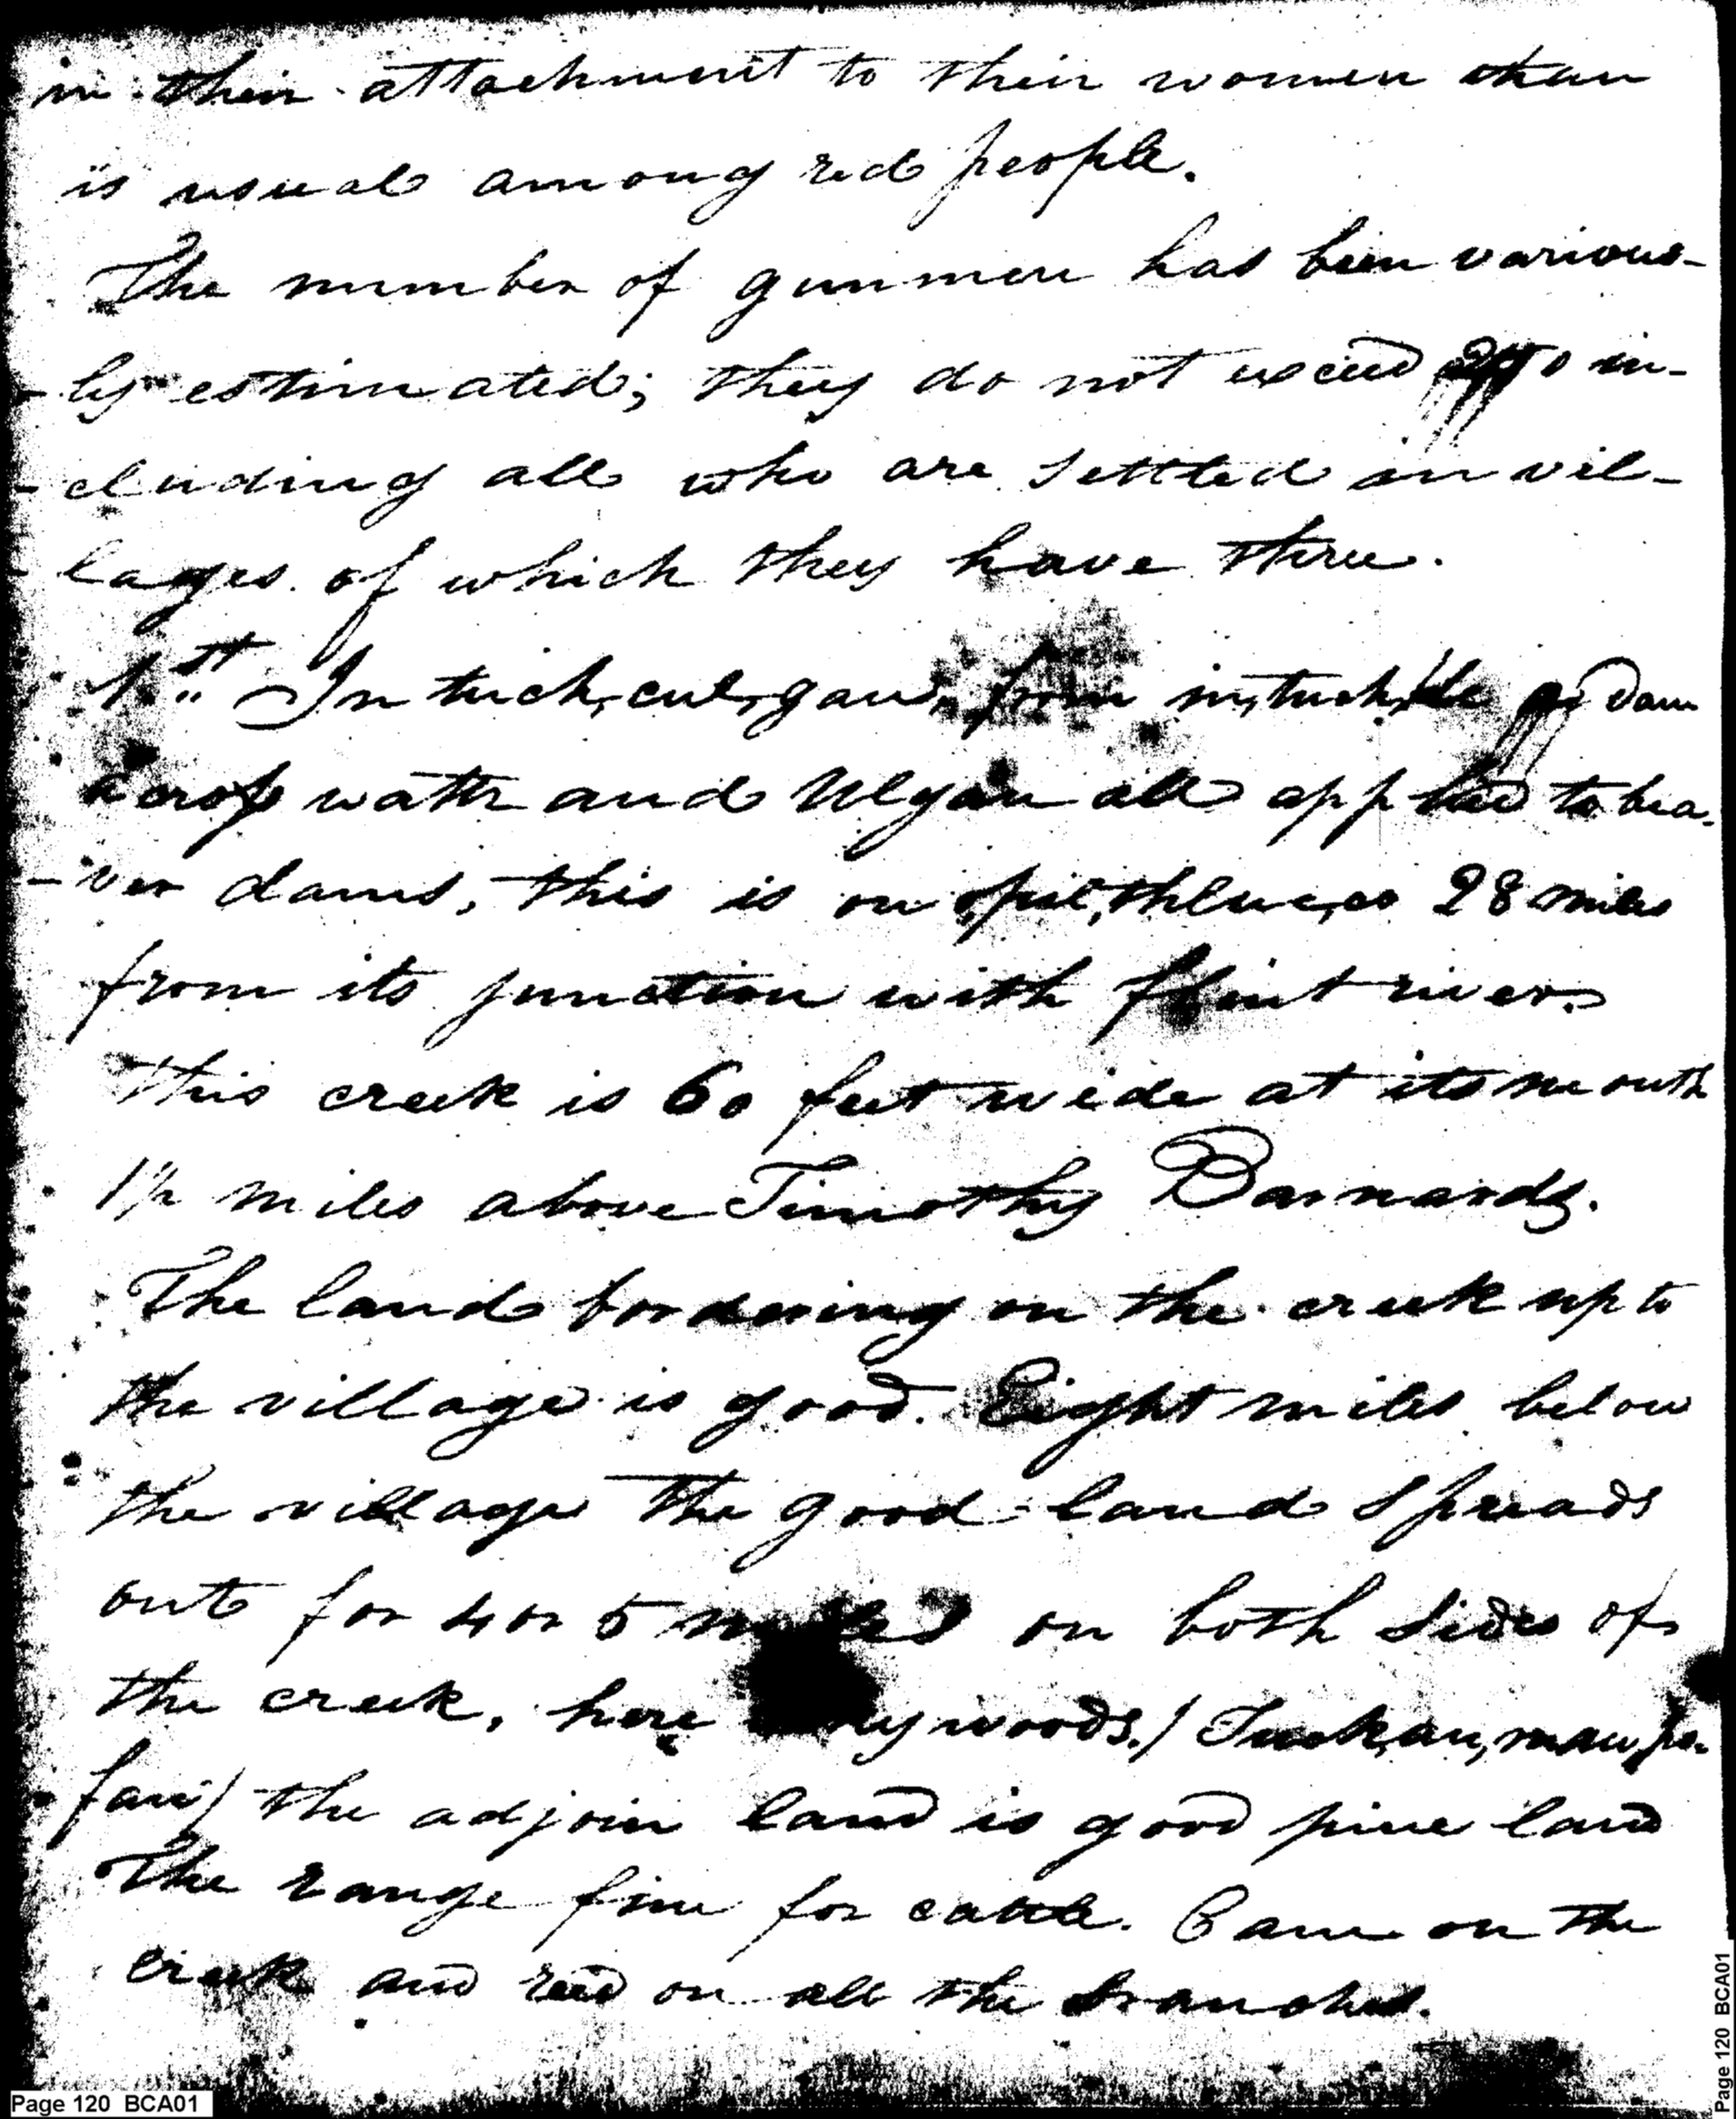 in their attachment to their women than
is usual among red people.
The number of gunmen has been various-
-ly estimated; they do not exceed in-
-cluding all who are settled in vil-
lages of which they have three.
1st In tuch,cul,gau, from in,tuch,ke a dam
across water and Ulgau all applied to bea-
-ver dams, this is on opil,thluc,co 28 miles
from its junction with flint river.
This creek is 60 feet wide at its mouth
1½ miles above Timothy Barnards.
The land bordering on the creek up to
the village is good. Eight miles below
the village the good land spreads
out for 4 or 5 miles on both sides of
the creek, here woods./ Tuck,au,mau,pa-
fau/ the adjoin land is good pine land
The range fine for cattle. Cane on the
creek and reed on all the branches.
Page 120 BCA01
Page 120 BCA01